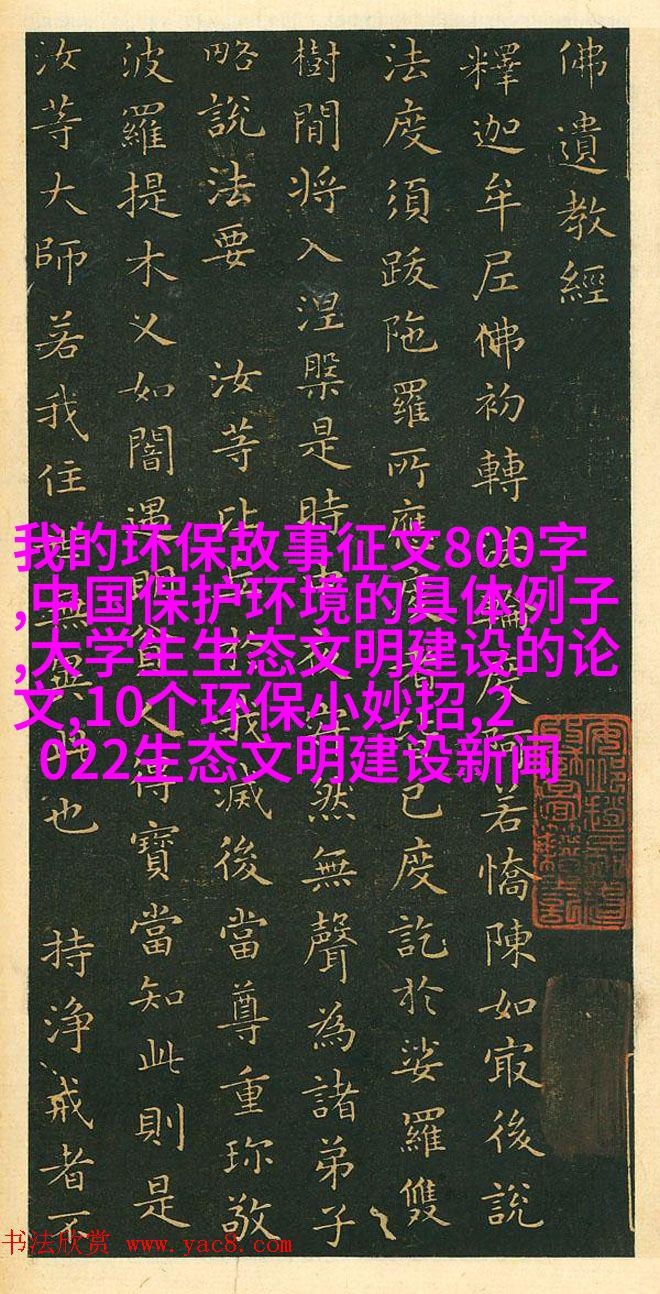 佛遺教經
釋迦牟尼佛初轉法輪度阿若憍陳如最後說
法度須跋陀羅所應度者皆已度訖於娑羅雙
樹間將入涅槃是時中夜寂然無聲為諸弟子
略說法要 汝等比丘於我滅後當尊重珎敬
波羅提木乂如闇遇明貧人得寶當知此則是
汝等大師若我住世無異此也 持净戒者不
我的环保故事征文800字
,中国保护环境的具体例子
,大学生生态文明建设的论
文,10个环保小妙招,2
022生态文明建设新闻
书法欣赏 www.yac8.com